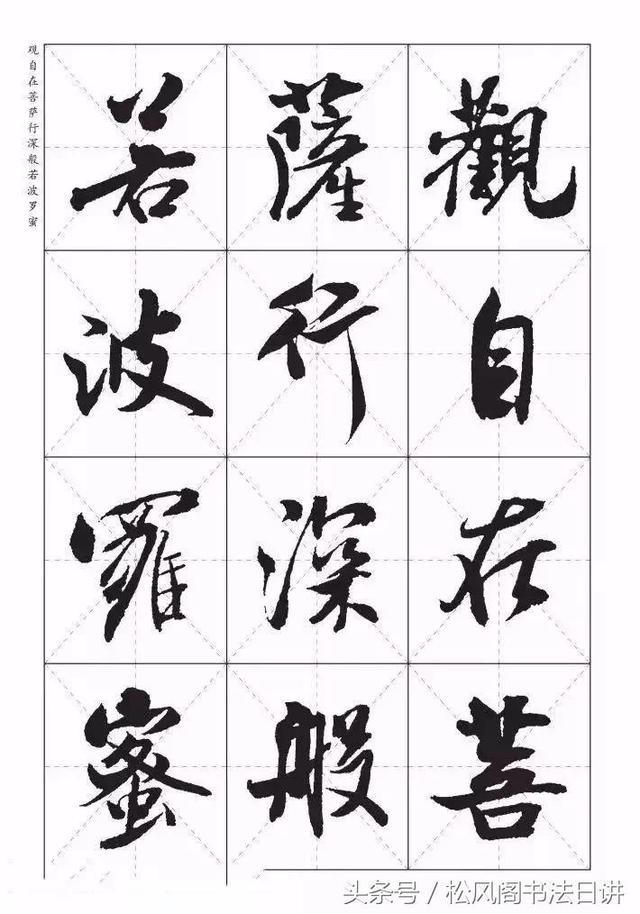 观自在菩萨行深般若波罗蜜
觀自在菩
薩行深般
若波羅蜜
头条号／松风阁书法日讲